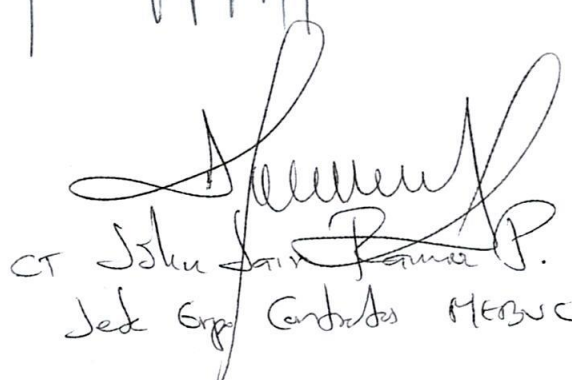 CT John Jair Parra P.
Jefe Grupo Contratos MEBUC